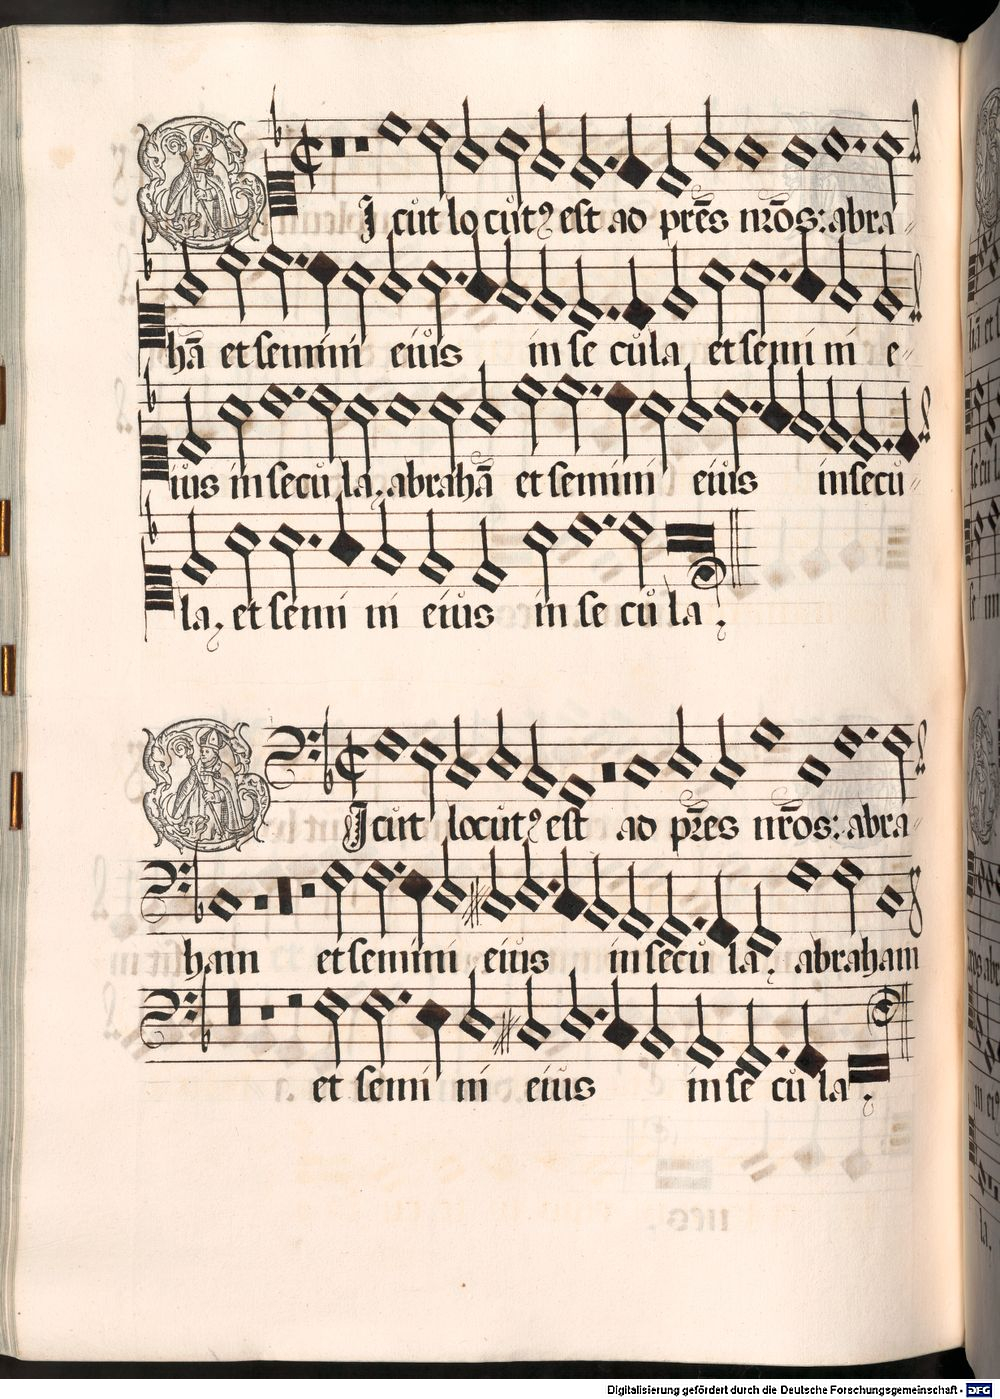 Sicut locutꝰ est ad prēs nrōs: abra-
hā et semini eius in secula et semini e-
ius in secula, abrahā et semini eius in secu-
la, et semini eius in secula.
Sicut locutꝰ est ad prēs nrōs: abra-
ham et semini eius in secula, abraham
et semini eius in secula.
Digitalisierung gefördert durch die Deutsche Forschungsgemeinschaft - DFG